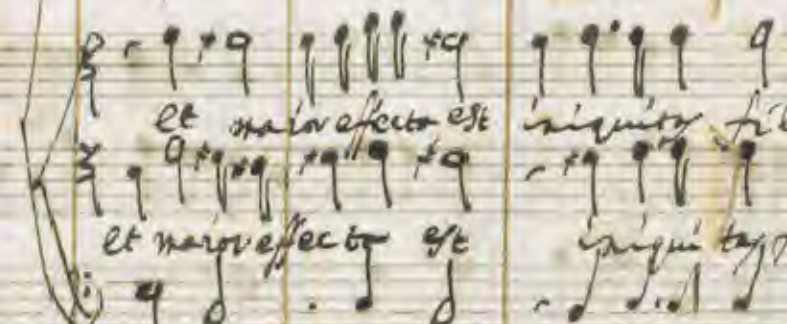 et maior effecta est iniquitas fil
et maior effecta est iniquitas